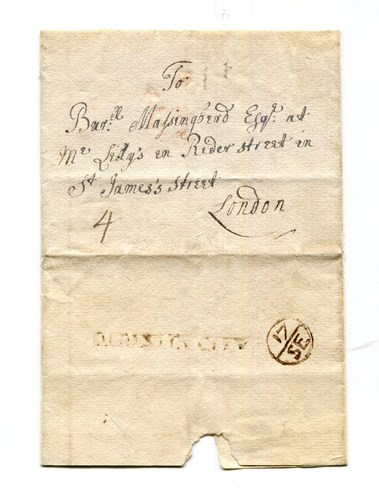 To
Bur:ll Massingberd Esqr: at
Mr Lilly's in Rider street in
St James's street
London
4
17
SE